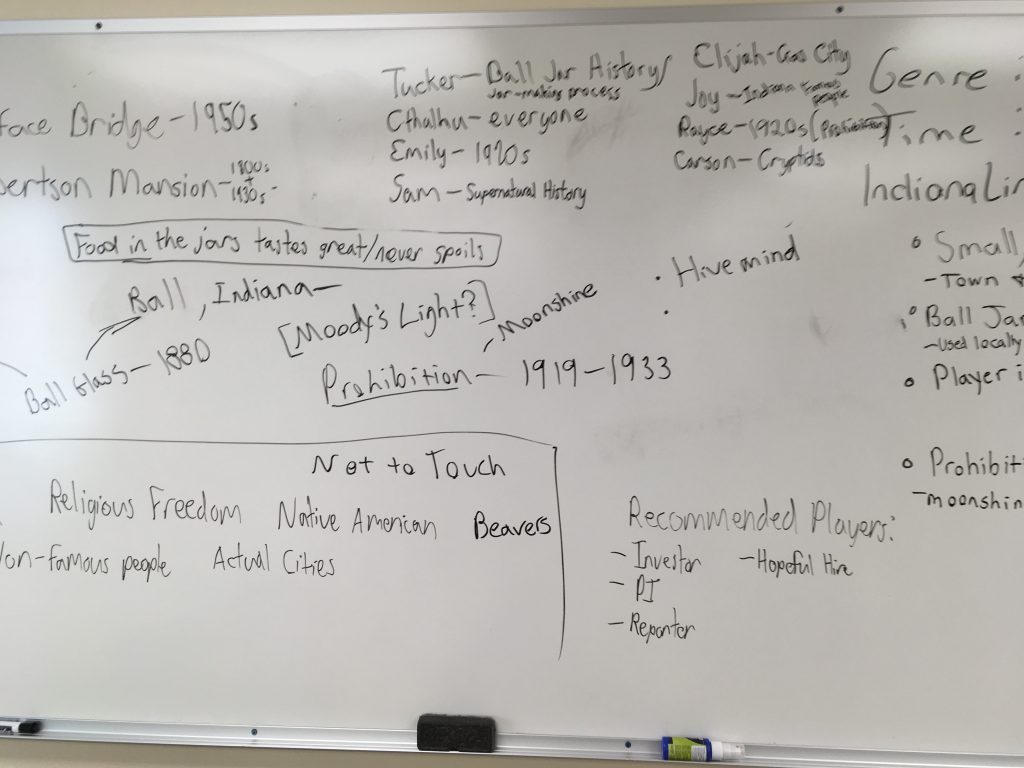 face Bridge-1950s
bertson Mansion-1800s + 1930s-
Tucker-Ball Jar History/
Jar-making process
Cthalhu-everyone
Emily-1920s
Sam-Supernatural History
Elijah-Gas City
Joy-Indiana Famous people
Royce-1920s (Prohibition)
Carson-Cryptids
Genre:
Time:
Indiana Lin
Food in the jars tastes great/never spoils
Ball, Indiana-
Ball Glass-1880
[Moody's Light?]
Prohibition-1919-1933
-Moonshine
• Hive mind
•
• Small,
-Town
• Ball Jar
-Used locally
• Player i
• Prohibit
-moonshin
Not to Touch
Religious Freedom Native American Beavers
Non-famous people Actual Cities
Recommended Players:
-Investor -Hopeful Hire
-PI
-Reporter